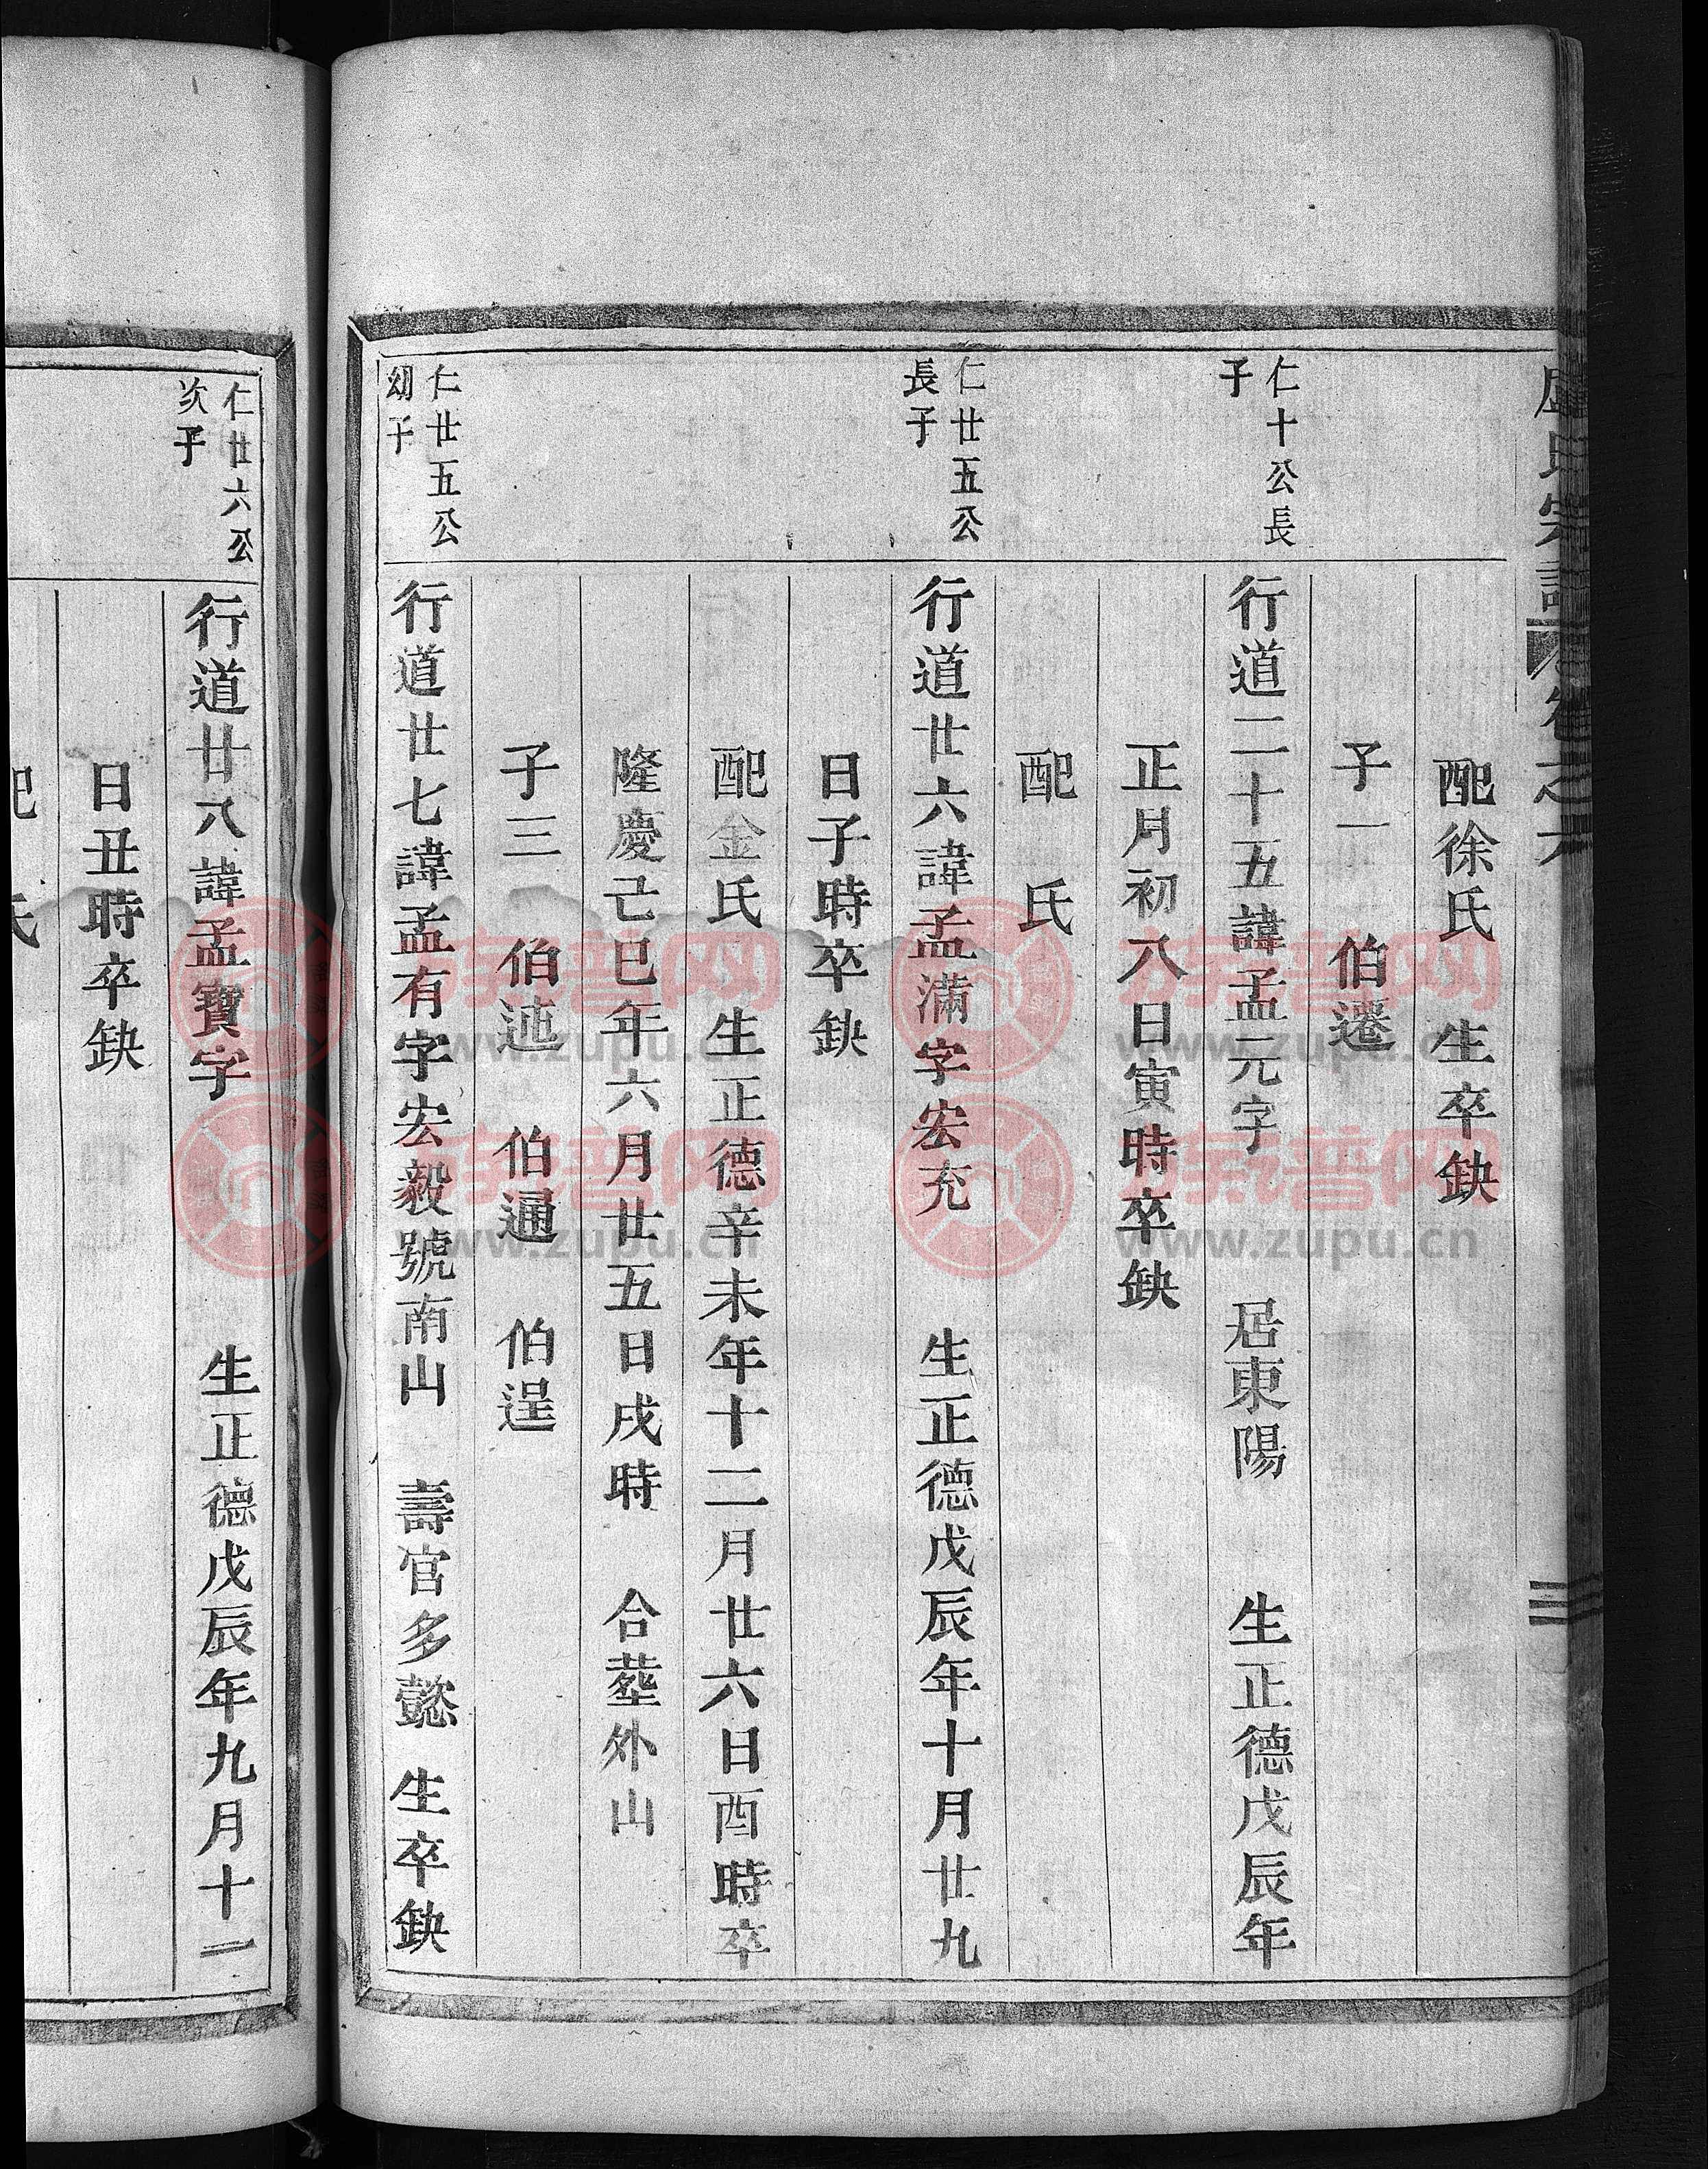 氏宗譜
卷之六
三
配徐氏 生卒缺
子一 伯遷
仁十公長
子
行道二十五諱孟元字 居東陽 生正德戊辰年
正月初八日寅時卒缺
配 氏
仁廿五公
長子
行道廿六諱孟滿字宏充 生正德戊辰年十月廿九
日子時卒缺
配金氏 生正德辛未年十二月廿六日酉時卒
隆慶己巳年六月廿五日戌時 合塟外山
子三 伯 伯通 伯逞
仁廿五公
幼子
行道廿七諱孟有字宏毅號南山 壽官多懿 生卒缺
仁廿六公
次子
行道廿八諱孟寶字 生正德戊辰年九月十一
日丑時卒缺
配 氏
族谱网
www.zupu.cn
族谱网
www.zupu.cn
族谱网
www.zupu.cn
族谱网
www.zupu.cn